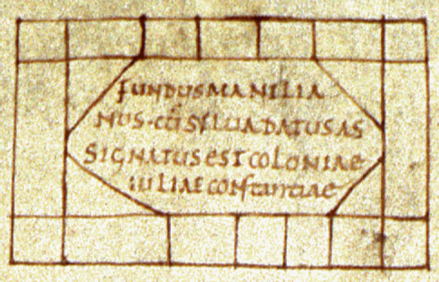 FUNDUS MANILIA
NUS · CCIS SILUA DATUS AS
SIGNATUS EST COLONIAE
IULIAE CONSTANTIAE